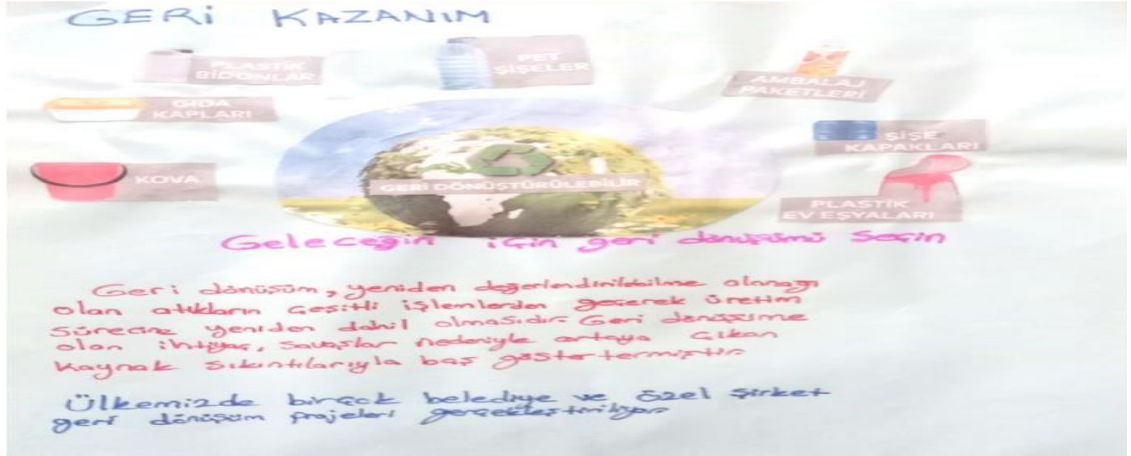 GERİ KAZANIM
PLASTİK
BİDONLAR
PET
ŞİŞELER
AMBALAJ
PAKETLERİ
GIDA
KAPLARI
ŞİŞE
KAPAKLARI
KOVA
GERİ DÖNÜŞTÜRÜLEBİLİR
PLASTİK
EV EŞYALARI
Geleceğin için geri dönüşümü seçin
Geri dönüşüm, yeniden değerlendirilebilme olanağı
olan atıkların çeşitli işlemlerden geçerek üretim
sürecine yeniden dahil olmasıdır. Geri dönüşüme
olan ihtiyaç, savaşlar nedeniyle ortaya çıkan
kaynak sıkıntılarıyla baş göstertermiştir.
Ülkemizde birçok belediye ve özel şirket
geri dönüşüm projeleri gerçekleştiriliyor.